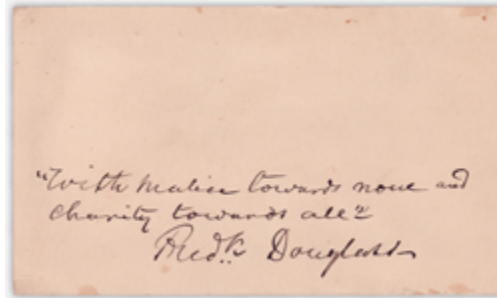 "With malice towards none and
charity towards all"
Fredk Douglass